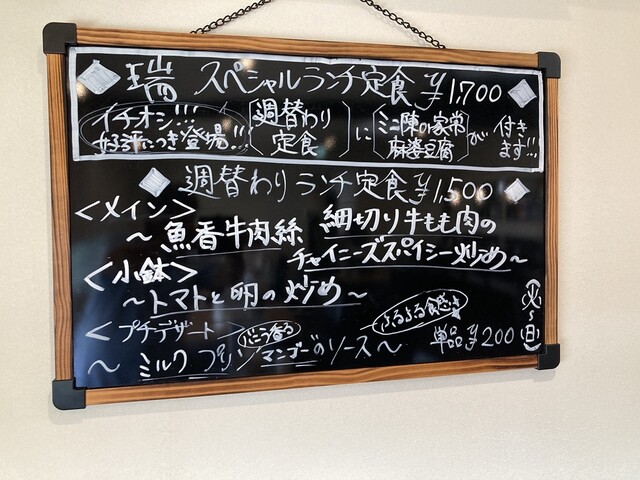 瑞 スペシャルランチ定食 ¥1,700
イチオシ!!! 好評につき登場!!! 週替わり定食 に ミニ陳の家常麻婆豆腐 が 付きます!!!
週替わりランチ定食 ¥1,500
<メイン>
～魚香牛肉絲 細切り牛もも肉の
チャイニーズスパイシー炒め～
<小鉢>
～トマトと卵の炒め～
<プチデザート> バニラ香る ぷるぷる食感 単品¥200
～ミルクプリン マンゴーのソース～
(火)～(日)